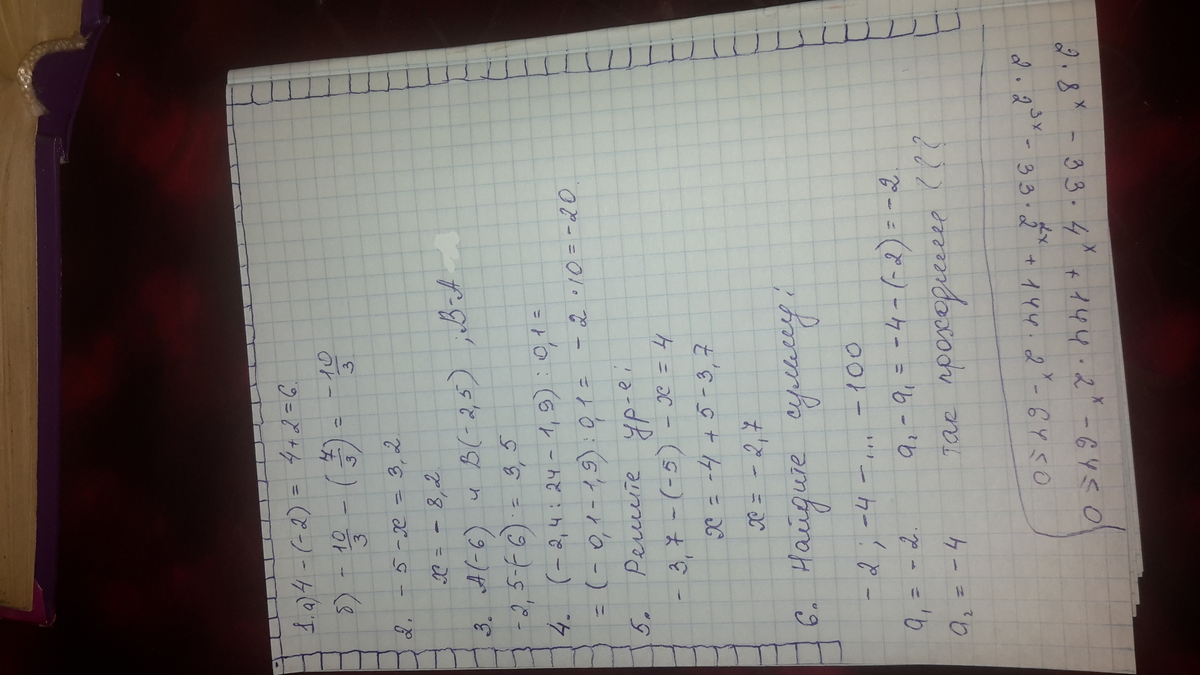 1. а) 4 - (-2) = 4 + 2 = 6.
б) - 10/3 - (7/3) = - 10/3
2. - 5 - x = 3,2
x = - 8,2
3. А(-6) и В(-2,5) ; В-А
-2,5-(-6) = 3,5
4. (-2,4 : 24 - 1,9) : 0,1 =
= (-0,1 - 1,9) : 0,1 = - 2 · 10 = -20.
5. Решите ур-е:
- 3,7 - (-5) - x = 4
x = -4 + 5 - 3,7
x = - 2,7
6. Найдите сумму:
- 2 ; -4 - ... - 100
a₁ = - 2. a₂ - a₁ = - 4 - (-2) = - 2
a₂ = - 4 так проходили ???
2 · 2³ˣ - 33 · 2²ˣ + 144 · 2ˣ - 64 ≥ 0
2 · 8ˣ - 33 · 4ˣ + 144 · 2ˣ - 64 ≥ 0